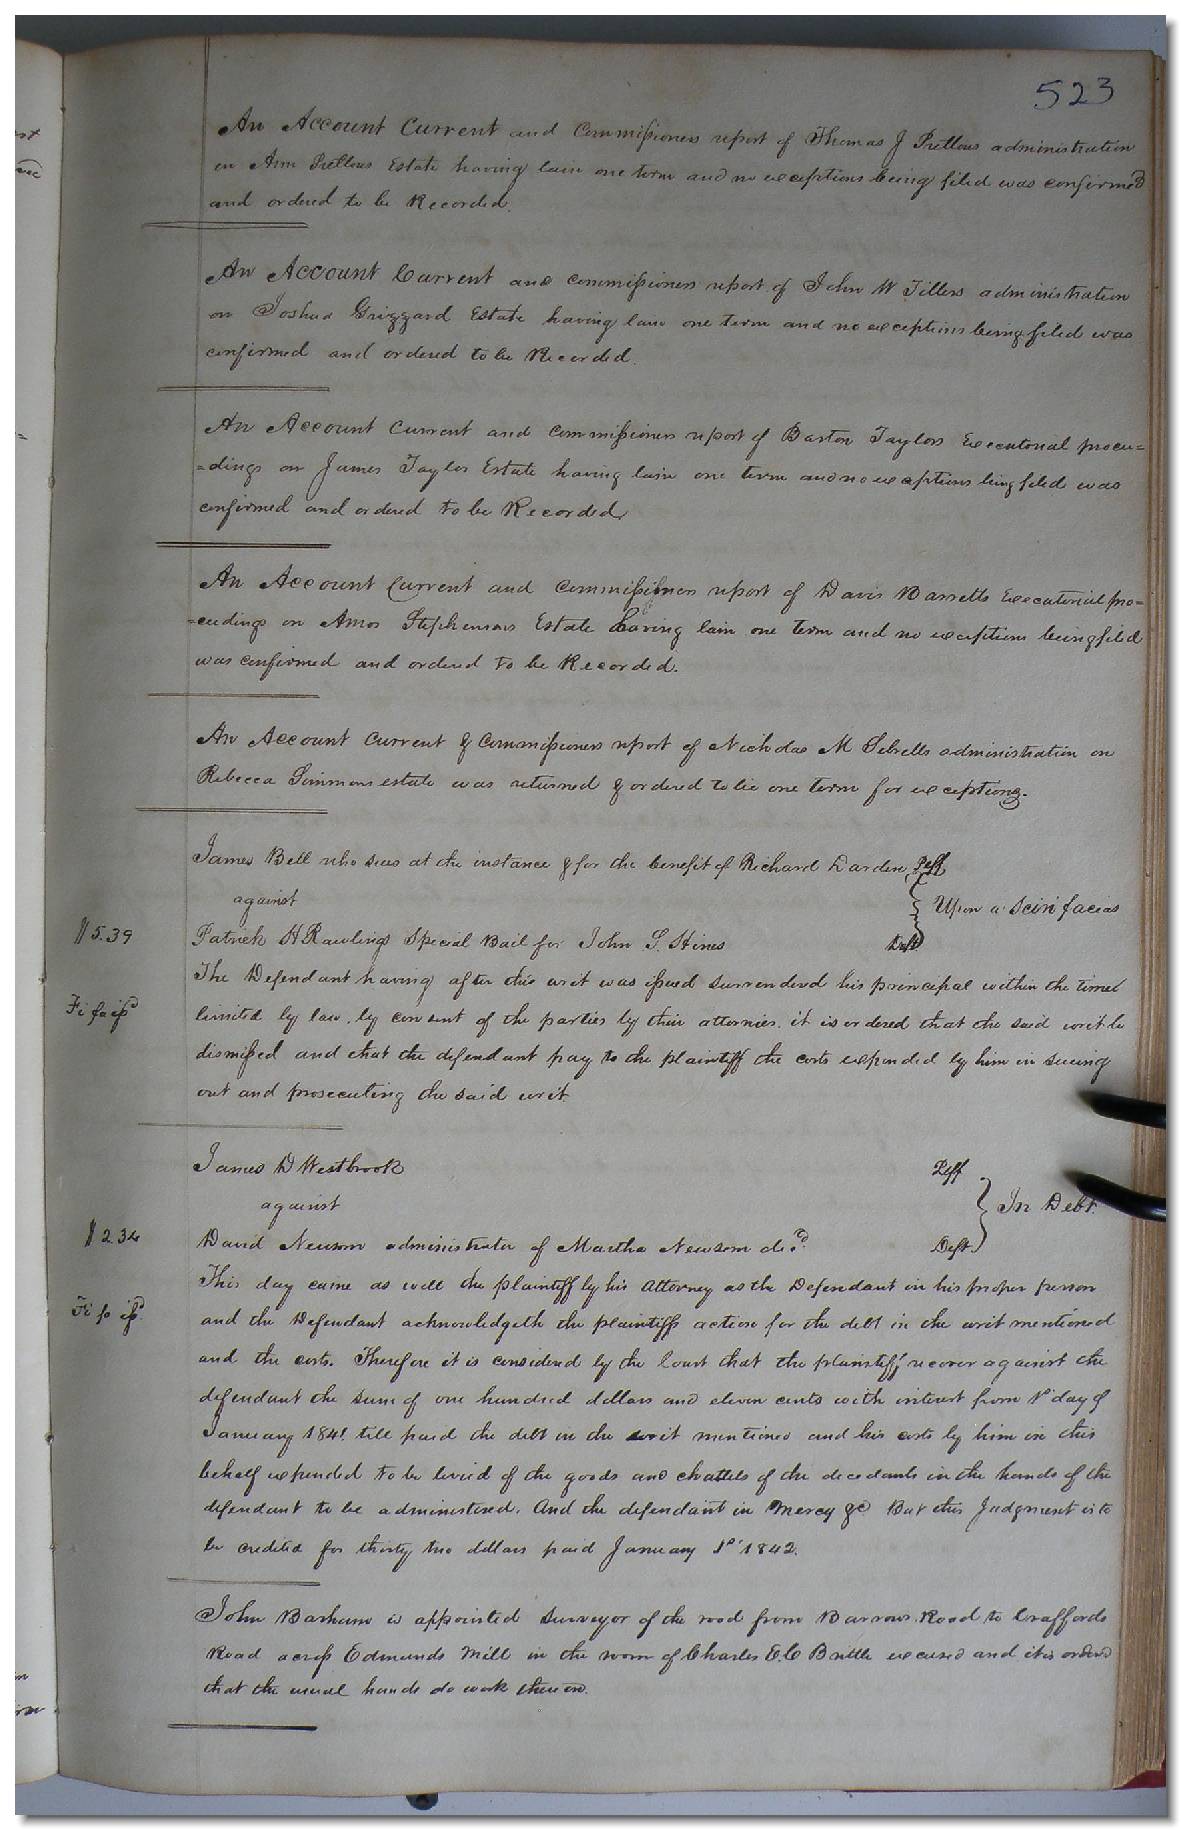 523
An Account Current and Commissioners report of Thomas J Pretlows administration
on Ann Pretlows Estate having lain one term and no exceptions being filed was confirmed
and ordered to be Recorded.
An Account Current and commissioners report of John W Tillers administration
on Joshua Grizzard Estate having lain one term and no exceptions being filed was
confirmed and ordered to be Recorded.
An Account Current and Commissioners report of Barton Taylors Executorial procee=
=dings on James Taylor Estate having lain one term and no exceptions being filed was
confirmed and ordered to be Recorded.
An Account Current and Commissioners report of Davis Barretts Executorial pro=
=ceedings on Amos Stephensons Estate having lain one term and no exceptions being filed
was confirmed and ordered to be Recorded.
An Account Current & Commissioners report of Nicholas M Sebrells administration on
Rebecca Simmons estate was returned & ordered to lie one term for exceptions.
James Bell who sues at the instance & for the benefit of Richard Darden Plff
against
Upon a Scire facias
$5.39
Patrick H Rawlings Special Bail for John S. Hines Deft
The Defendant having after this writ was issued surrendered his principal within the time
Fi fa issd
limited by law, by consent of the parties by their attornies. it is ordered that the said writ be
dismissed and that the defendant pay to the plaintiff the costs expended by him in sueing
out and prosecuting the said writ.
James D Westbrook Plff
against
In Debt.
$2.34
David Newsom administrator of Martha Newsom decd. Deft
This day came as well the plaintiff by his Attorney as the Defendant in his proper person
Fi fa issd
and the Defendant acknowledgeth the plaintiffs action for the debt in the writ mentioned
and the costs. Therefore it is considered by the Court that the plaintiff recover against the
defendant the sum of one hundred dollars and eleven cents with interest from 1st day of
January 1841. till paid the debt in the writ mentioned and his costs by him in this
behalf expended to be levied of the goods and chattels of the decedants in the hands of the
defendant to be administered. And the defendant in Mercy &c But this Judgment is to
be credited for thirty two dollars paid January 1st 1842.
John Barham is appointed surveyor of the road from Barrows Road to Craffords
Road across Edmunds Mill in the room of Charles E.C Brittle excused and it is ordered
that the usual hands do work thereon.